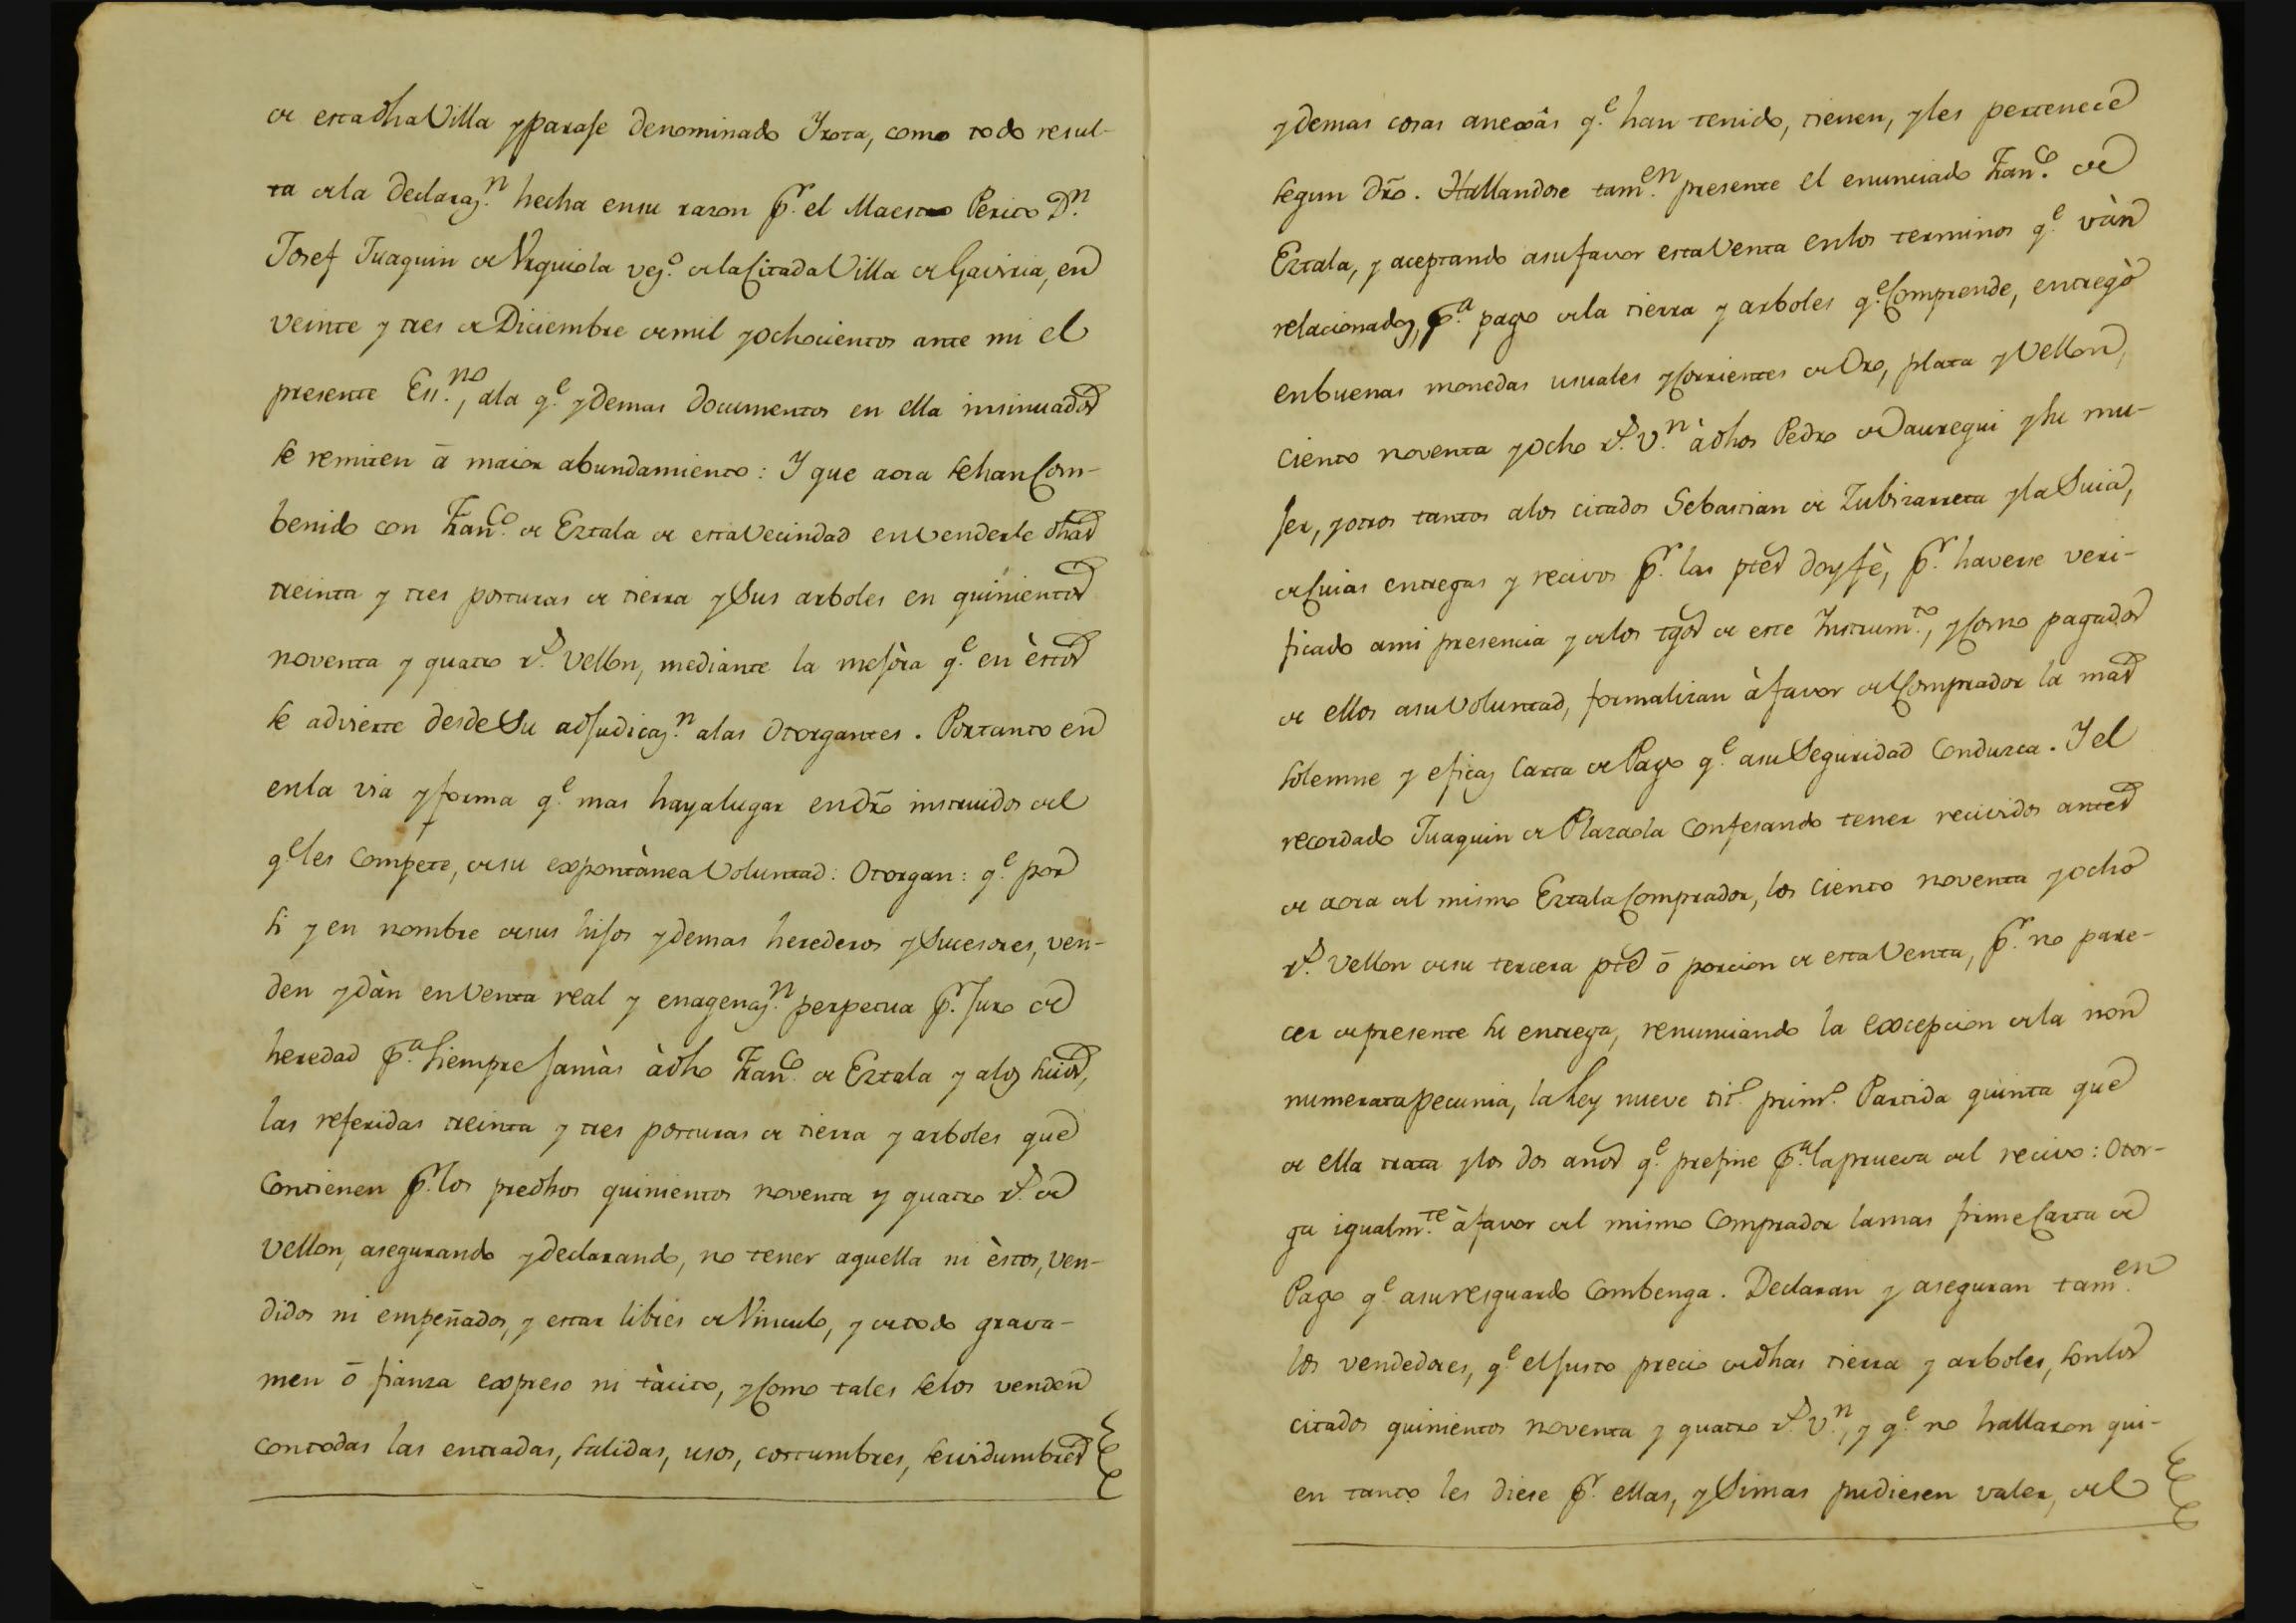 de esta dha Villa y parase denominado Yrota, como todo resul-
ta de la declaraz.n hecha en su razon pr. el Maestro Perito Dn.
Josef Juaquin de Vrquiola vez.o de la Citada Villa de Gaviria, en
veinte y tres de Diciembre de mil y ochocientos ante mi el
presente Essno., ala q.e y demas documentos en ella insinuados
se remiten á maior abundamiento: Y que aora se han Com-
benido con Fran.co de Eztala de esta Vecindad en venderle dhas
treinta y tres posturas de tierra y Sus arboles en quinientos
noventa y quatro r.s Vellon, mediante la mejòra q.e en èstos
se advierte desde Su adjudicaz.n alas Otorgantes. Portanto en
en la via y forma q.e mas haya lugar en dro instruidos del
q.e les Compete, de su expontànea Voluntad: Otorgan: q.e por
si y en nombre de sus hijos y demas herederos y Sucesores, ven-
den y dàn en Venta real y enagenaz.n perpetua pr. juro de
heredad p.a Siempre Jamàs à dho Fran.co de Eztala y a los suios,
las referidas treinta y tres posturas de tierra y arboles que
Contienen pr. los predhos quinientos noventa y quatro r.s de
Vellon, asegurando y declarando, no tener aquella ni èstos, ven-
didos ni empeñados, y estar libres de Vinculo, y de todo grava-
men ō fianza expreso ni tàcito, y Como tales se los venden
con todas las entradas, salidas, usos, costumbres, servidumbres
y demas cosas anexâs q.e han tenido, tienen, y les pertenece
segun dro. Hallandose tam.en presente el enunciado Fran.co de
Eztala, y aceptando a su favor esta Venta en los terminos q.e vàn
relacionados, p.a pago de la tierra y arboles q.e Comprende, entregò
en buenas monedas usuales y Corrientes de Oro, plata y Vellon,
Ciento noventa y ocho r.s v.n à dhos Pedro de Jauregui y su mu-
jer, y otros tantos a los citados Sebastian de Zubizarreta y la Suia,
de Cuias entregas y recivos pr. las ptes doy fè, pr. haverse veri-
ficado a mi presencia y de los tgos de este Instrum.to, y Como pagados
de ellos a su Voluntad, formalizan à favor del Comprador la mas
solemne y eficaz Carta de Pago q.e a su Seguridad Conduzca. Y el
recordado Juaquin de Plazaola Confesando tener recividos antes
de aora del mismo Eztala Comprador, los Ciento noventa y ocho
r.s Vellon de su tercera pte ō porcion de esta Venta, pr. no pare-
cer de presente su entrega, renunciando la excepcion de la non
numerata pecunia, la Ley nueve tit.o prim.o Partida quinta que
de ella trata y los dos años q.e prefine p.a la prueva del recivo: Otor-
ga igualm.te à favor del mismo Comprador la mas firme Carta de
Pago q.e a su resguardo Combenga. Declaran y aseguran tam.en
los vendedores, q.e el justo precio de dhas tierra y arboles, son los
citados quinientos noventa y quatro r.s v.n, y q.e no hallaron qui-
en tanto les diese pr. ellas, y Si mas pudiesen valer, del